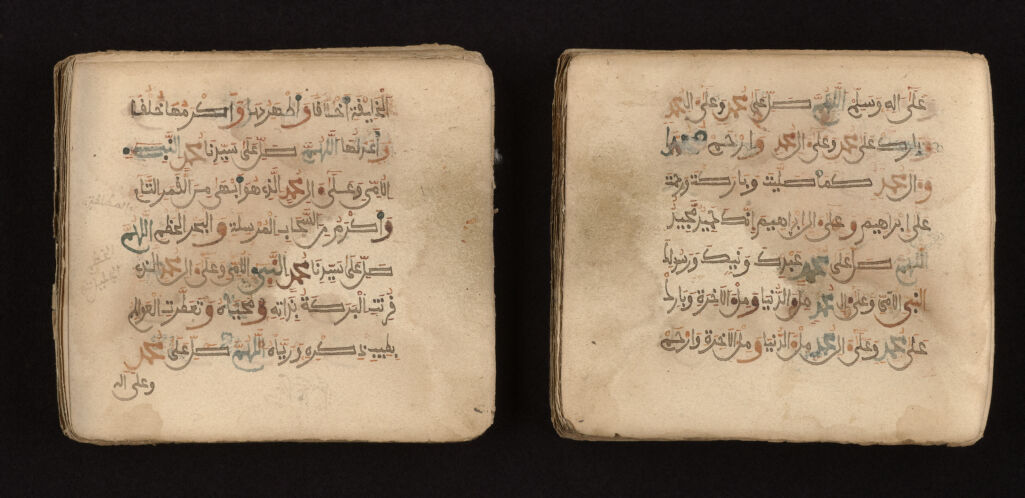 الخليقة اخلاقا واطهرها واكرمها خلقا
واعدلها اللهم صل على سيدنا محمد النبي
الامي وعلى ال محمد الذي هو ابهى من القمر التام
واكرم من السحاب المرسلة والبحر اللهم
صل على سيدنا محمد النبي الامي وعلى ال محمد الذي
قرنت البركة بذاته ومحياه وتعطرت العوالم
بطيب ذكره ورياه اللهم صل على محمد
وعلى اله
على اله وسلم اللهم صل على محمد وعلى ال محمد
وبارك على محمد وعلى ال محمد وارحم محمدا
وال محمد كما صليت وباركت ورحمت
على ابراهيم وعلى ال ابراهيم انك حميد مجيد
اللهم صل على محمد عبدك ونبيك ورسولك
النبي الامي وعلى ال محمد ملء الدنيا وملء الاخرة وبارك
على محمد وعلى ال محمد ملء الدنيا وملء الاخرة وارحم